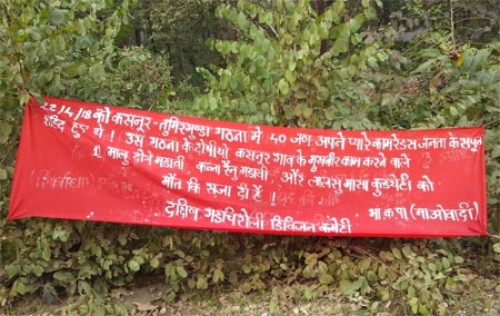 22/4/18 को कसनूर - तुमिरगुण्डा गठना में 40 जण अपने प्यारे कामरेडस जनता के सपुत
शहिद हुए थे ! उस गठना के दोषीयो कसनूर गाव के मुगबीर काम करने वाले
मालु दोगे मडावी, कन्ना रैनु मडावी, और लालसु मासा कुडयेटी को
मौत कि सजा दी है !
दक्षिण गडचिरोली डिविजन कमेटी
भा.क.पा (माओवादी)